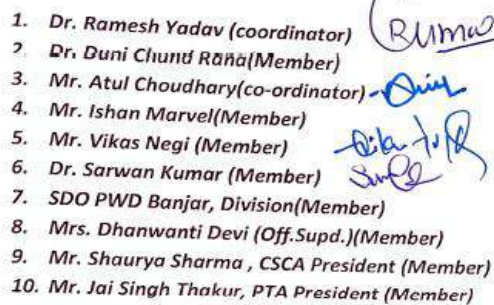 1. Dr. Ramesh Yadav (coordinator)
2. Dr. Duni Chund Rana(Member)
3. Mr. Atul Choudhary(co-ordinator)
4. Mr. Ishan Marvel(Member)
5. Mr. Vikas Negi (Member)
6. Dr. Sarwan Kumar (Member)
7. SDO PWD Banjar, Division(Member)
8. Mrs. Dhanwanti Devi (Off.Supd.)(Member)
9. Mr. Shaurya Sharma , CSCA President (Member)
10. Mr. Jai Singh Thakur, PTA President (Member)